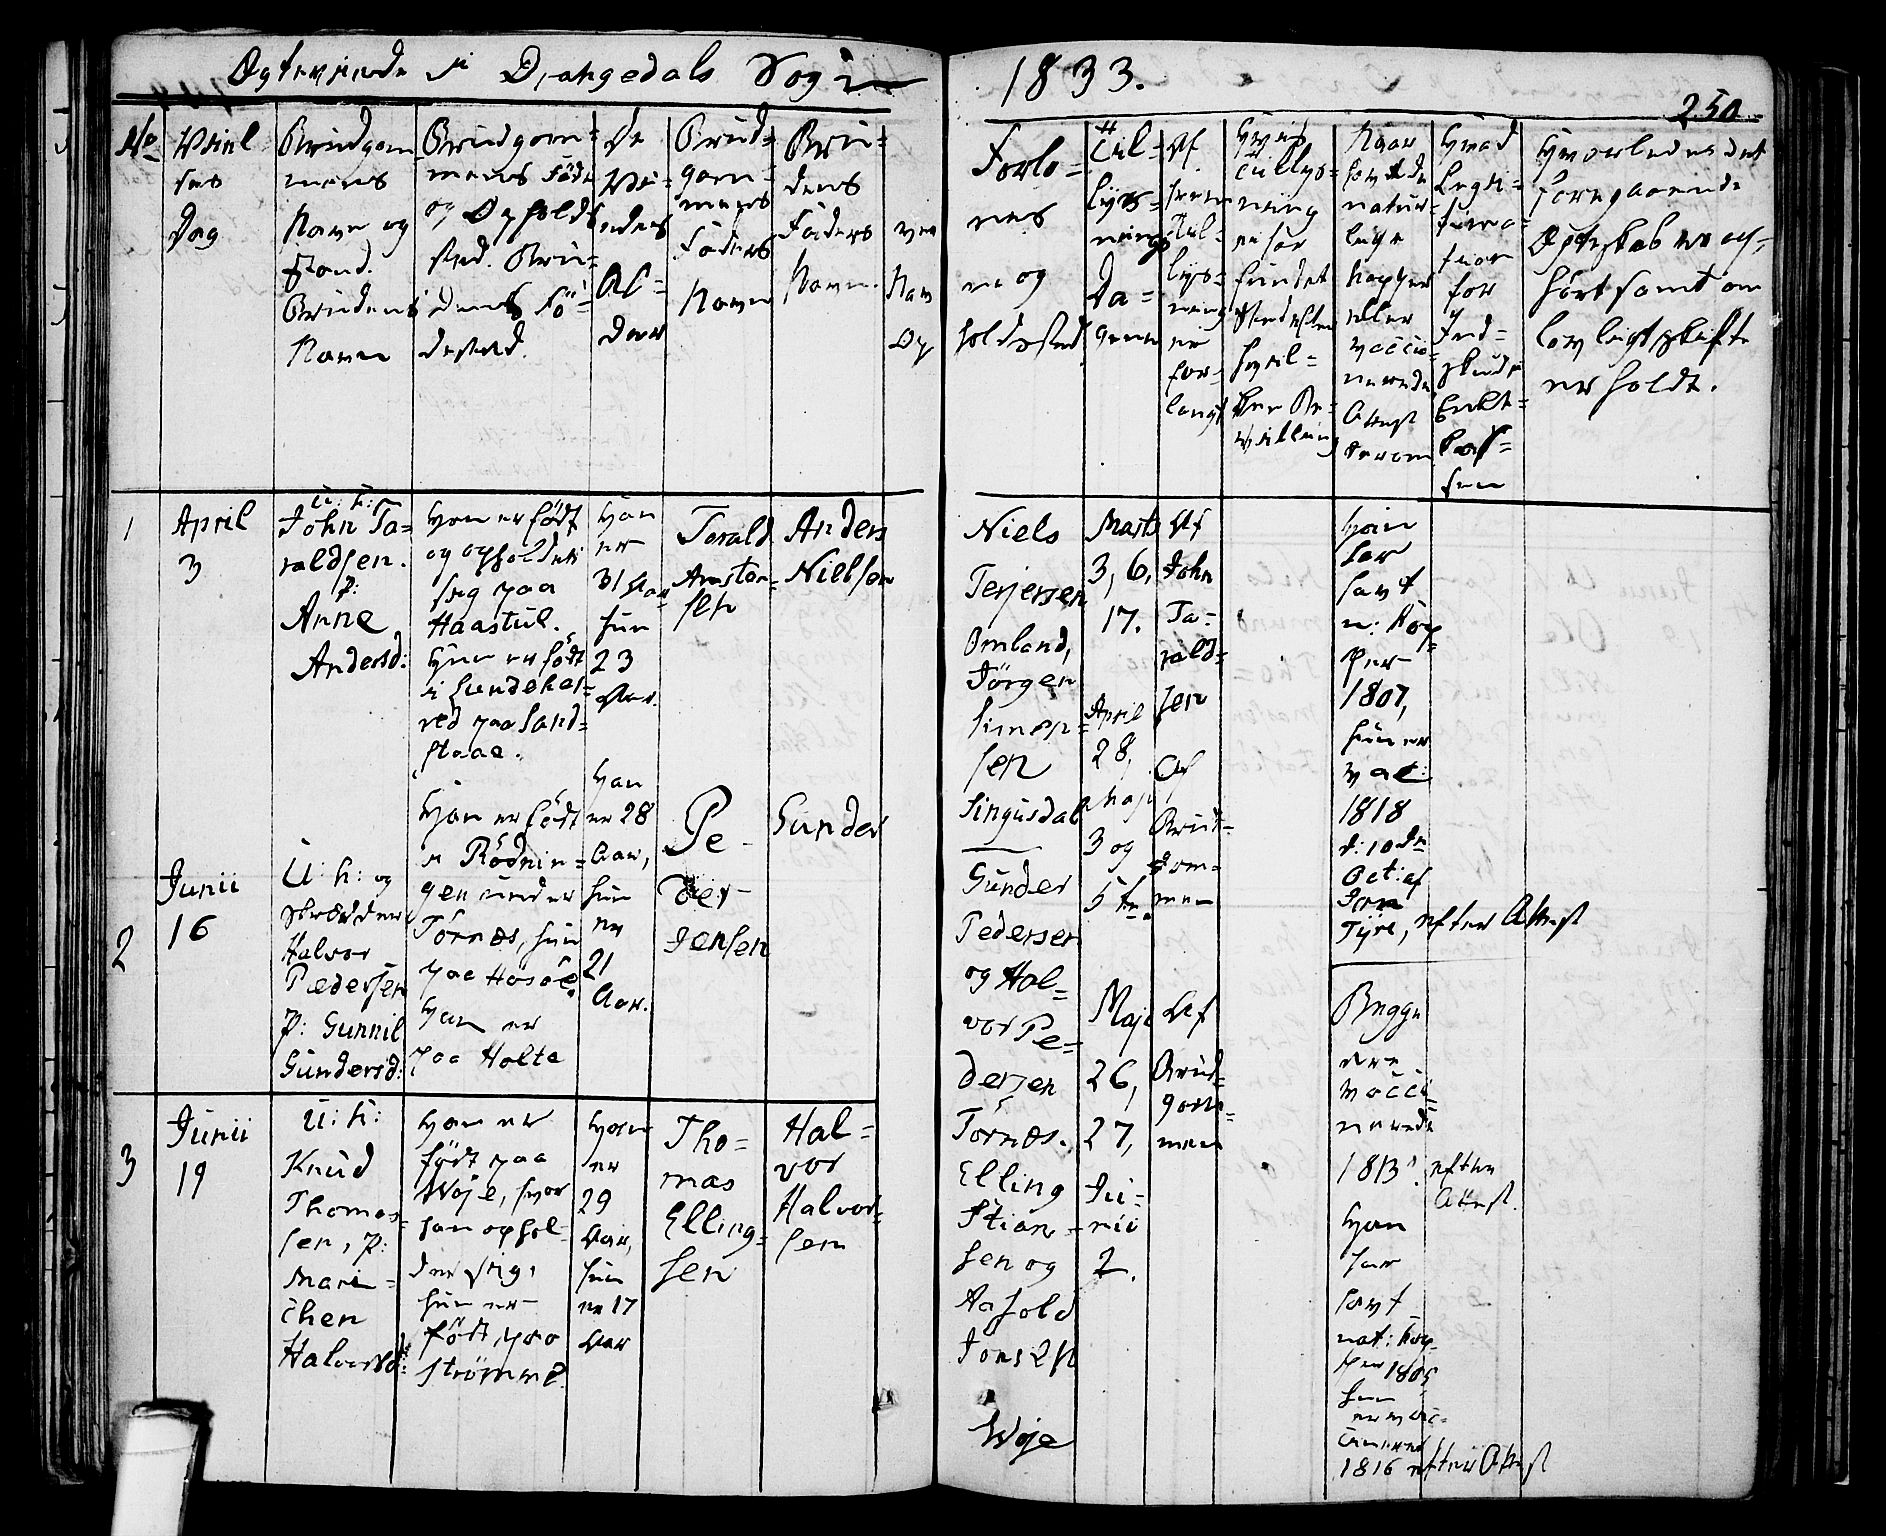 Ogteviede i Drangedals Sogn
1833.
250.
No
Viel
ses
Dag
Brudgom
mens
Navn og
Stand.
Brudens
Navn
Brudgom=
mens Föde
og Opholds
sted. Bru=
dens Fö=
dested.
De
Vi=
edes
Al=
der
Brud=
gom=
mens
Faders
Navn
Bru=
dens
Faders
Navn.
Forlo=
nes
ne og
holdssted
Til=
lys=
nings
Da=
gene
Af
hvem
Tul=
lys=
ning
er
for=
langt
Hvis
Tillys=
ning
er for
fundet
Sted efter
hvil=
ken Be=
villing
Naar
havde
natur=
lige
Kopper
eller
vacci=
nerede
Attest
derom
Hvad
Legiti=
for
Ind=
skud i
Enke=
kas=
sen
Hvorledes det
foregaaende
Ægteskab er op=
hört samt om
lovligt skifte
er holdt.
1
April
3
U: K:
John Ta=
raldsen.
P:
Anne
Andersd:
Han er födt
og opholder
sig paa
Haastul.
Hun er födt
i Sundeher=
red paa Sand=
staae.
Han
er
31 Aar
hun
23
Aar.
Torald
Amsten=
sen
Anders
Nielsen
Niels
Terjersen
Omland,
Jörgen
Simon=
sen
Singusdal
Marts
3, 6,
17.
Af
John
Ta=
rald=
sen
Han
har
havt
n: Kop=
per
1807,
hun er
vac:
1818
d: 10de
Oct: af
Jorn
Tyre, efter Attest
2
Junii
16
U: K: og
Skrædder
Halvor
Pedersen
P: Gunnil
Gundersd:
Han er födt
i Rödnin=
gen under
Törnæs, hun
paa Hosöe.
Han er
paa Holte
Han
er 28
Aar,
hun
er
21
Aar.
Pe-
der
Jensen
Gunder
Gunder
Pedersen
og Hal=
vor Pe=
dersen
Törnæs.
April
28,
Maji
3 og
5te.
Af
Brud=
gom=
men
Begge
ere
vacci=
nerede
1813. efter
Attest.
3
Junii
19
U: K:
Knud
Thomas=
sen, P:
Mari=
chen
Halvorsd:
Han er
födt paa
Woje, hvor
han ophol=
der sig,
hun er
födt paa
Strömme.
Han
er
29
Aar,
hun
er 17
Aar
Tho=
mas
Elling=
sen
Hal=
vor
Halvor=
sen
Elling
Stian=
sen og
Aasold
Jonsen
Woje
Maji
26,
27,
Ju=
nii
2.
Af
Brud=
gom=
men
Han
har
havt
nat: Kop=
per 1805
hun
er vac=
cineret
1816 efter Attest